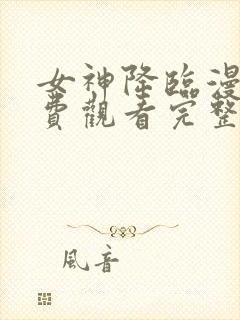 女神降臨漫
費觀看完整
風音